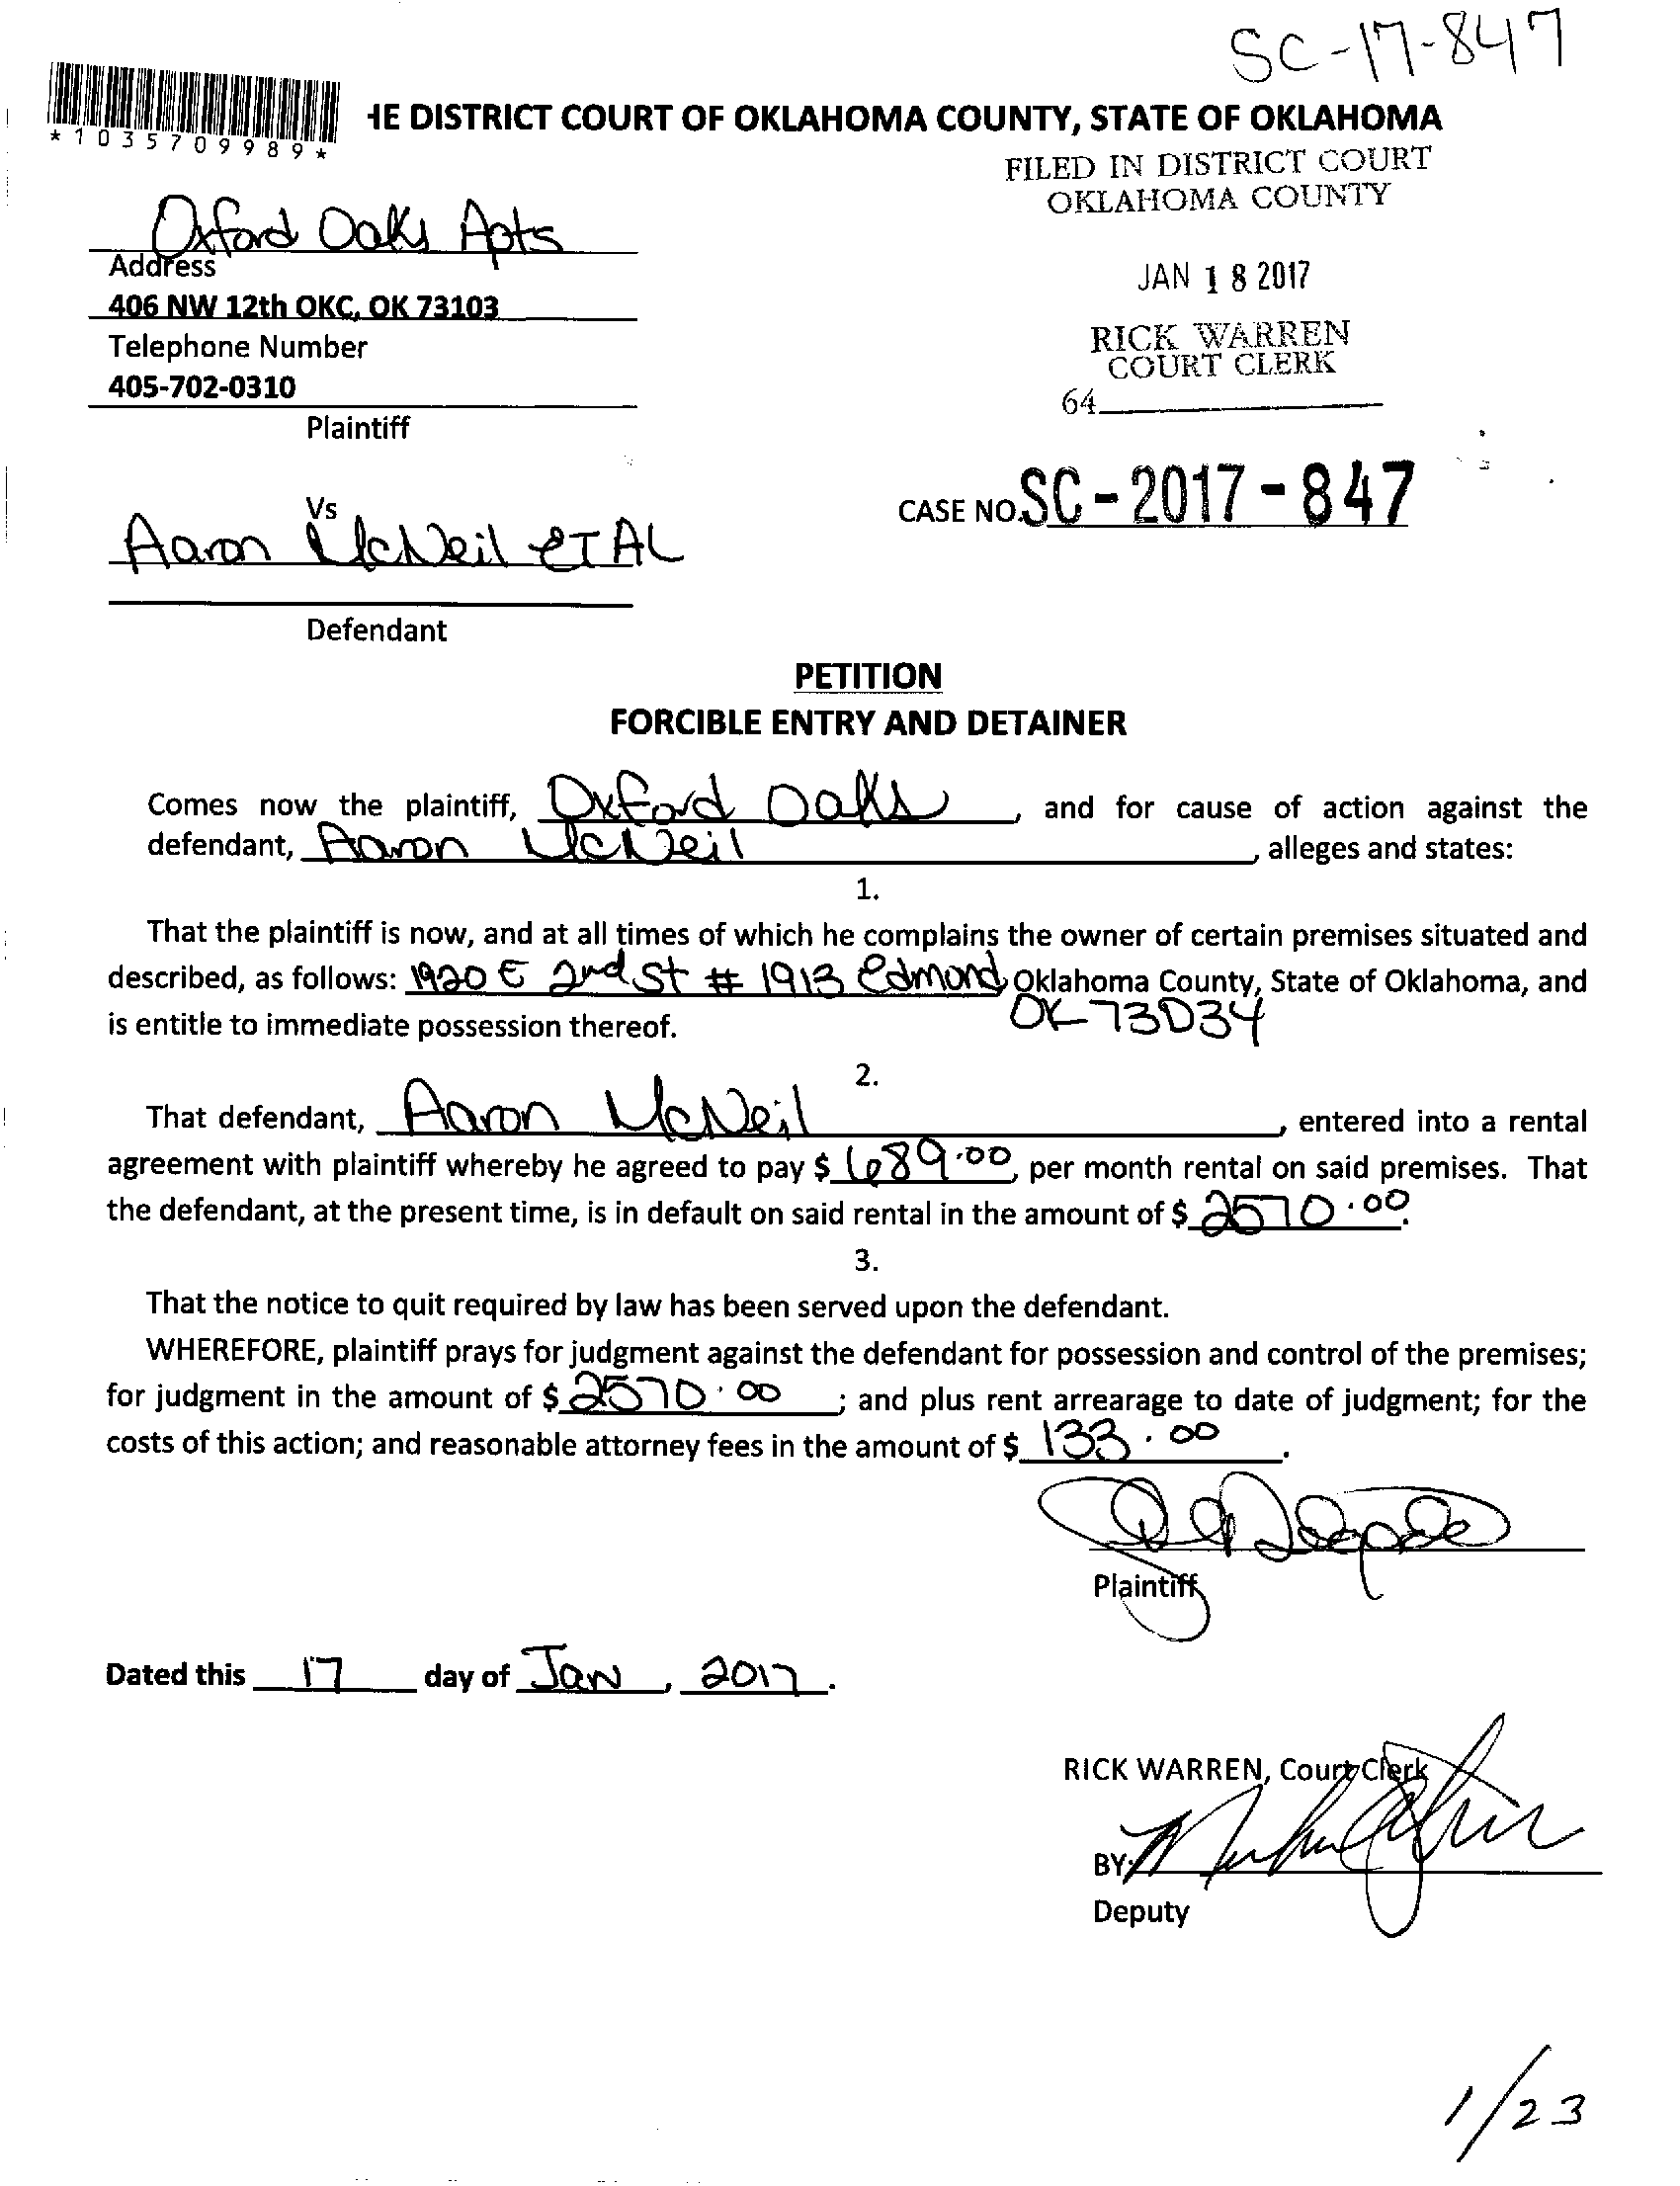 SC-17-847
*1035709989*
HE DISTRICT COURT OF OKLAHOMA COUNTY, STATE OF OKLAHOMA
FILED IN DISTRICT COURT
OKLAHOMA COUNTY
Oxford Oaks Apts
Address
406 NW 12th OKC, OK 73103
Telephone Number
405-702-0310
Plaintiff
JAN 18 2017
RICK WARREN
COURT CLERK
64
Vs
CASE NO. SC-2017-847
Aaron McNeil ET AL
Defendant
PETITION
FORCIBLE ENTRY AND DETAINER
Comes now the plaintiff, Oxford Oaks, and for cause of action against the
defendant, Aaron McNeil, alleges and states:
1.
That the plaintiff is now, and at all times of which he complains the owner of certain premises situated and
described, as follows: 1920 E 2nd St # 1913 Edmond, Oklahoma County, State of Oklahoma, and
OK 73034
is entitle to immediate possession thereof.
2.
That defendant, Aaron McNeil, entered into a rental
agreement with plaintiff whereby he agreed to pay $ 689.00, per month rental on said premises. That
the defendant, at the present time, is in default on said rental in the amount of $ 2570.00.
3.
That the notice to quit required by law has been served upon the defendant.
WHEREFORE, plaintiff prays for judgment against the defendant for possession and control of the premises;
for judgment in the amount of $ 2570.00 ; and plus rent arrearage to date of judgment; for the
costs of this action; and reasonable attorney fees in the amount of $ 133.00.
Plaintiff
Dated this 17 day of Jan, 2017.
RICK WARREN, Court Clerk
BY:
Deputy
1/23